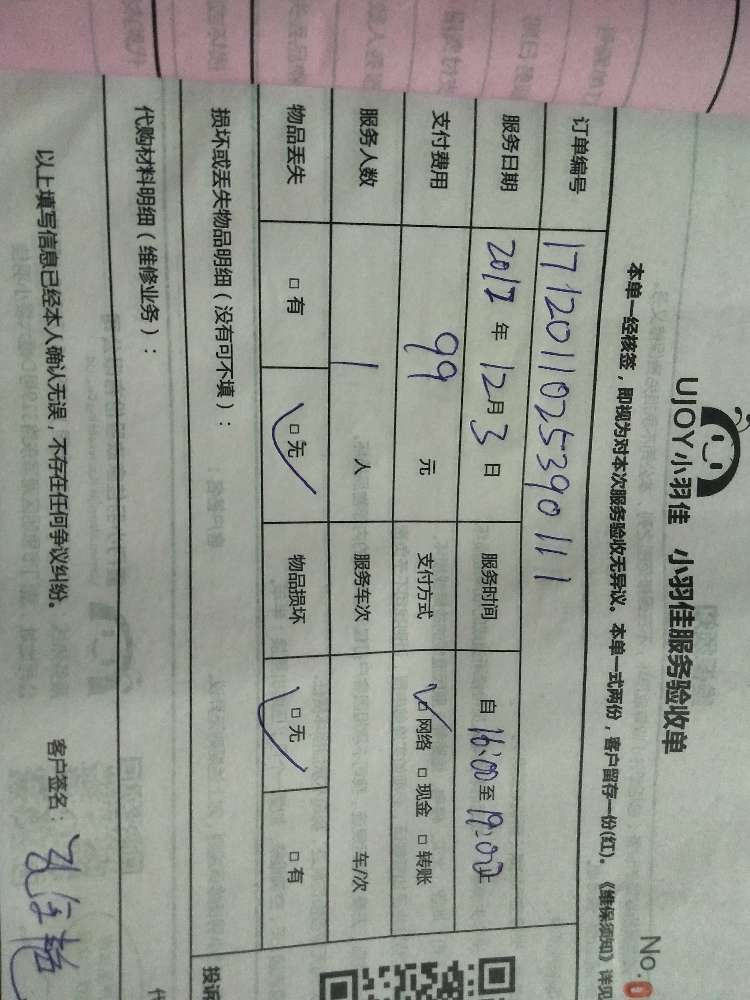 UJOY小羽佳 小羽佳服务验收单
No.0
本单一经核签，即视为对本次服务验收无异议。本单一式两份，客户留存一份(红)。《维保须知》详见
订单编号 1712011025390111
服务日期 2017年12月3日 服务时间 自16:00至19:00止
支付费用 99 元 支付方式 □网络 □现金 □转账
服务人数 1 人 服务车次 车/次
物品丢失 □有 □无 物品损坏 □无 □有
损坏或丢失物品明细（没有可不填）：
投诉
代购材料明细（维修业务）：
代
以上填写信息已经本人确认无误，不存在任何争议纠纷。 客户签名：